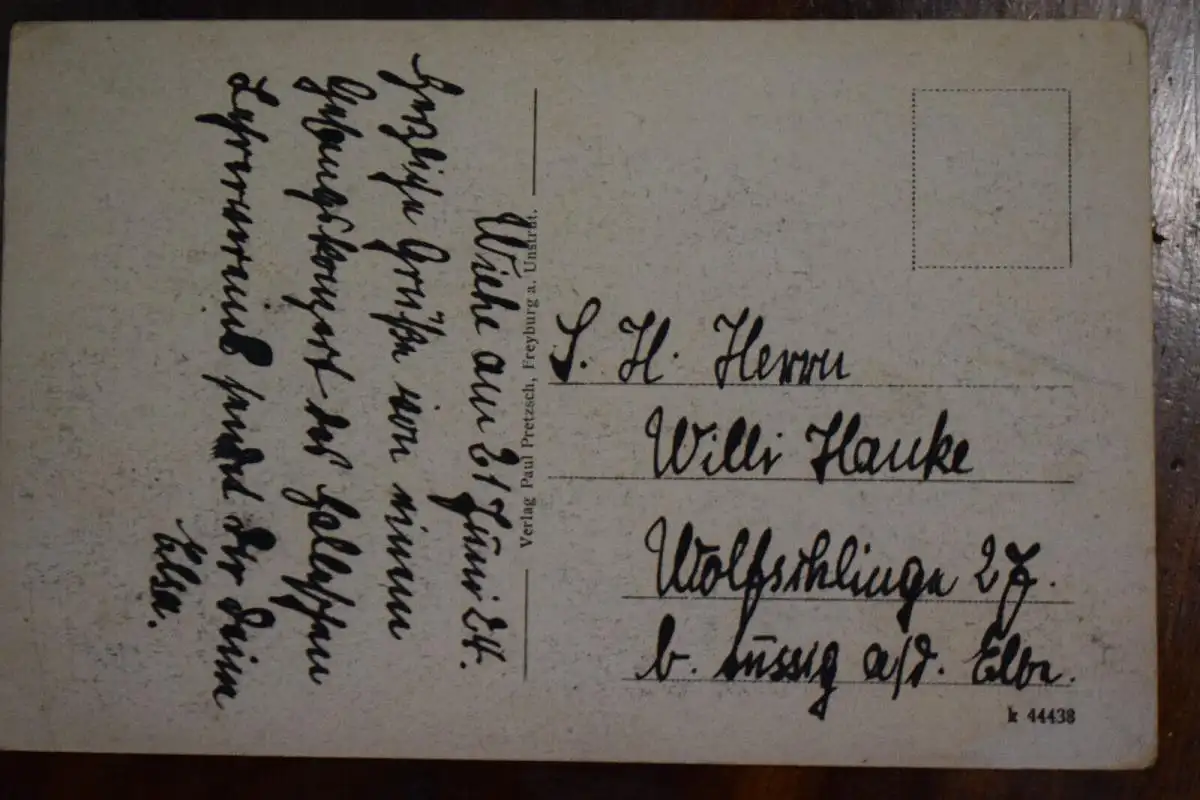 Wiehe am 21 Juni 24.
Herzliche Grüße von einem
Gesangskonzert des Hallischen
Lehrervereins sendet Dir Deine
Elsa.
Verlag Paul Pretzsch, Freyburg a. Unstrut.
S. H. Herrn
Willi Hauke
Wolfschlinge 27.
b. Aussig a/d. Elbe.
k 44438